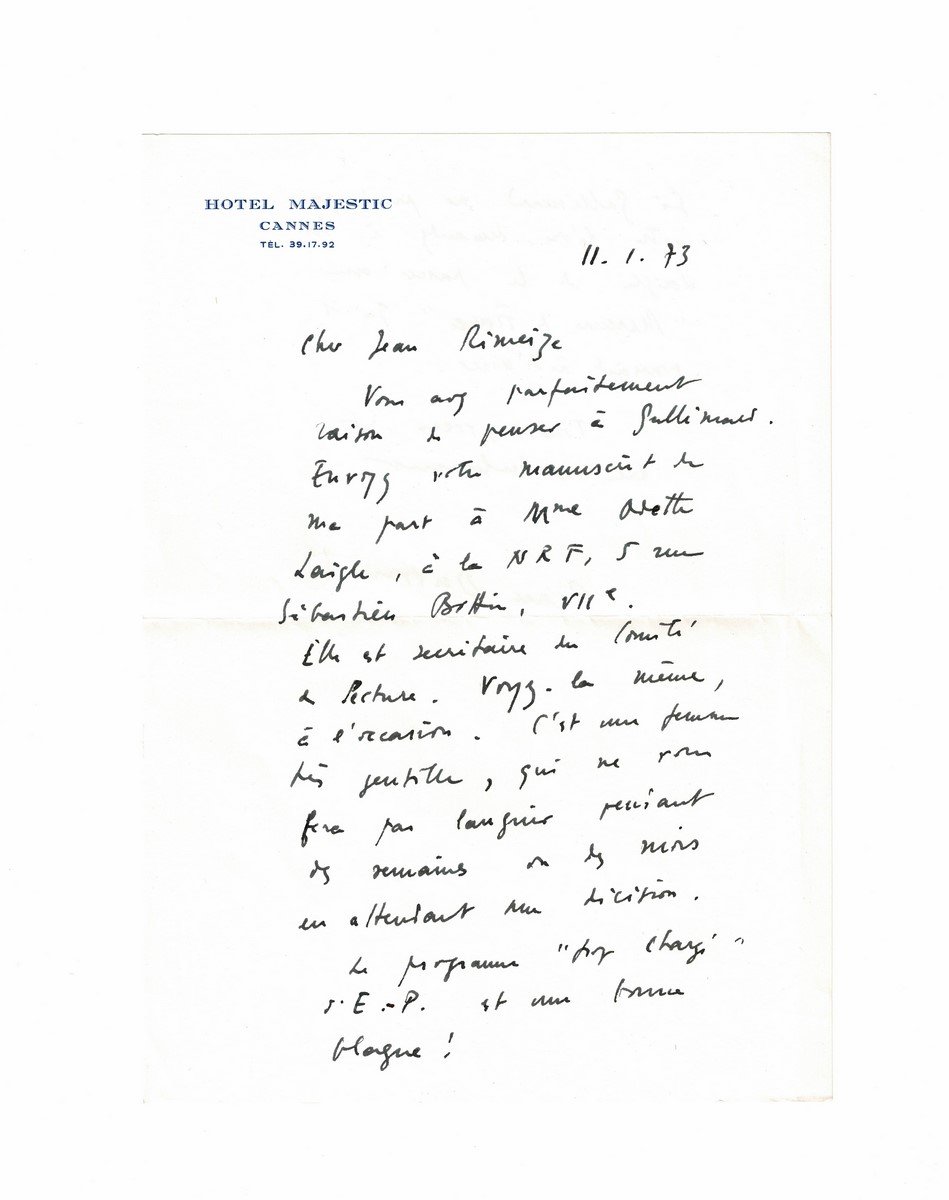 HOTEL MAJESTIC
CANNES
TÉL. 39.17.92
11. 1. 73
Cher Jean Rimeize
Vous avez parfaitement
raison de penser à Gallimard.
Envoyez votre manuscrit de
ma part à Mme Odette
Laigle, à la NRF, 5 rue
Sébastien Bottin, VIIe.
Elle est secrétaire du Comité
de Lecture. Voyez-la même,
à l'occasion. C'est une femme
très gentille, qui ne vous
fera pas languir pendant
des semaines ou des mois
en attendant une décision.
Le programme "trop chargé"
d'E.-P. est une bonne
blague !